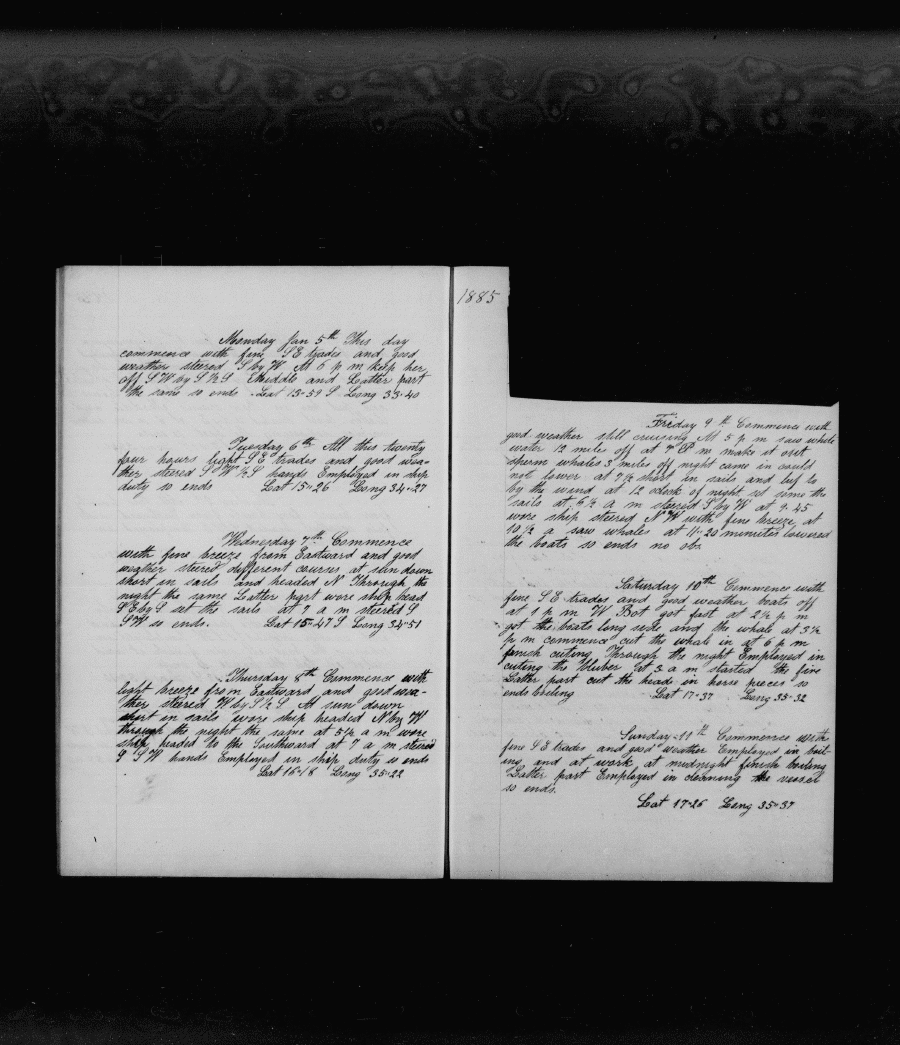 Monday Jan 5th This day
commence with fine S E trades and good
weather steered S by W At 6 p m keep her
off S W by S ½ S Middle and Latter part
the same so ends Lat 15-59 S Long 33-40
Tuesday 6th All this twenty
four hours light S E trades and good wea=
ther steered S W ½ S hands Employed in ship
duty so ends Lat 15-26 Long 34-27
Wednesday 7th Commence
with fine breeze from Eastward and good
weather steered different courses at sun down
short in sails and headed N Through the
night the same Latter part wore ship head
S E by S set the sails at 7 a m steered S
S W so ends. Lat 15-47 S Long 34-51
Thursday 8th Cummence with
light breeze from Eastward and good wea-
ther steered W by S ½ S At sun down
short in sails wore ship headed N by W
through the night the same at 5½ a m wore
ship headed to the Southward at 7 a m steered
S S W hands Employed in ship duty so ends
Lat 16-18 Long 35-22
1885
Friday 9th Commence with
good weather still cruising At 5 p m saw whale
water 12 miles off at P m make it out
sperm whales 3 miles off night came in could
not lower at 7½ short in sails and luf to
by the wind at 12 oclock of night set some the
sails at 5½ a m steered S by W at 9.45
wore ship steered N W with fine breeze at
10½ a saw whales at 11-20 minutes lowered
the boats so ends no obs
Saturday 10th Commence with
fine S E trades and good weather boats off
at 1 p m W Bot got fast at 2½ p m
got the boats long side and the whale at 3½
p m commence cut the whale in at 6 p m
finish cuting Through the night Employed in
cuting the bluber at 3 a m started the fire
Latter part cut the head in horse pieces so
ends boiling Lat 17-37 Long 35-32
Sunday 11th Commence with
fine S E trades and good weather Employed in boil-
ing and at work at midnight finish boiling
Latter part Employed in cleansing the vessel
so ends.
Lat 17-26 Long 35-37